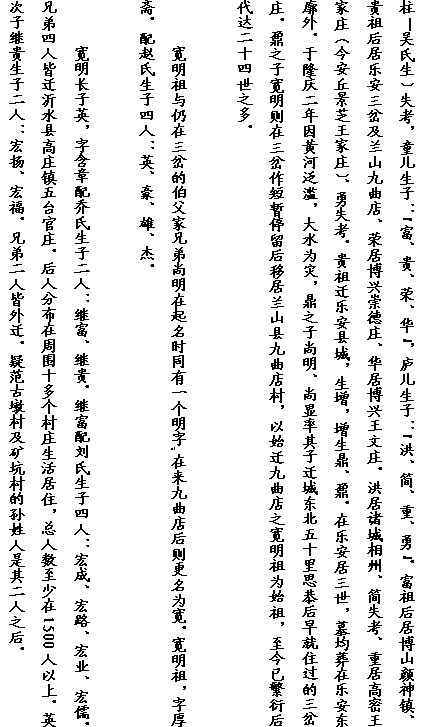 柱—吴氏生）失考，童儿生子：『富、贵、荣、华』，庐儿生子：『洪、简、重、勇』。富祖后居博山颜神镇、
贵祖后居乐安三岔及兰山九曲店、荣居博兴崇德庄、华居博兴王文庄。洪居诸城相州、简失考、重居高密王
家庄（今安丘景芝王家庄）、勇失考。贵祖迁乐安县城，生增，增生鼎、鼐。在乐安居三世，墓均葬在乐安东
廓外。于隆庆二年因黄河泛滥，大水为灾，鼎之子尚明、尚显率其子迁城东北五十里思恭后早就住过的三岔
庄。鼐之子宽明则在三岔作短暂停留后移居兰山县九曲店村，以始迁九曲店之宽明祖为始祖，至今已繁衍后
代达二十四世之多。
宽明祖与仍在三岔的伯父家兄弟尚明在起名时同有一个明字，在来九曲店后则更名为宽。宽明祖，字厚
斋。配赵氏生子四人：英、豪、雄、杰。
宽明长子英，字含章配乔氏生子二人：继富、继贵。继富配刘氏生子四人：宏成、宏路、宏业、宏儒。
兄弟四人皆迁沂水县高庄镇五台官庄。后人分布在周围十多个村庄生活居住，总人数至少在1500人以上。英
次子继贵生子二人：宏扬、宏福。兄弟二人皆外迁。疑范古墩村及矿坑村的孙姓人是其二人之后。